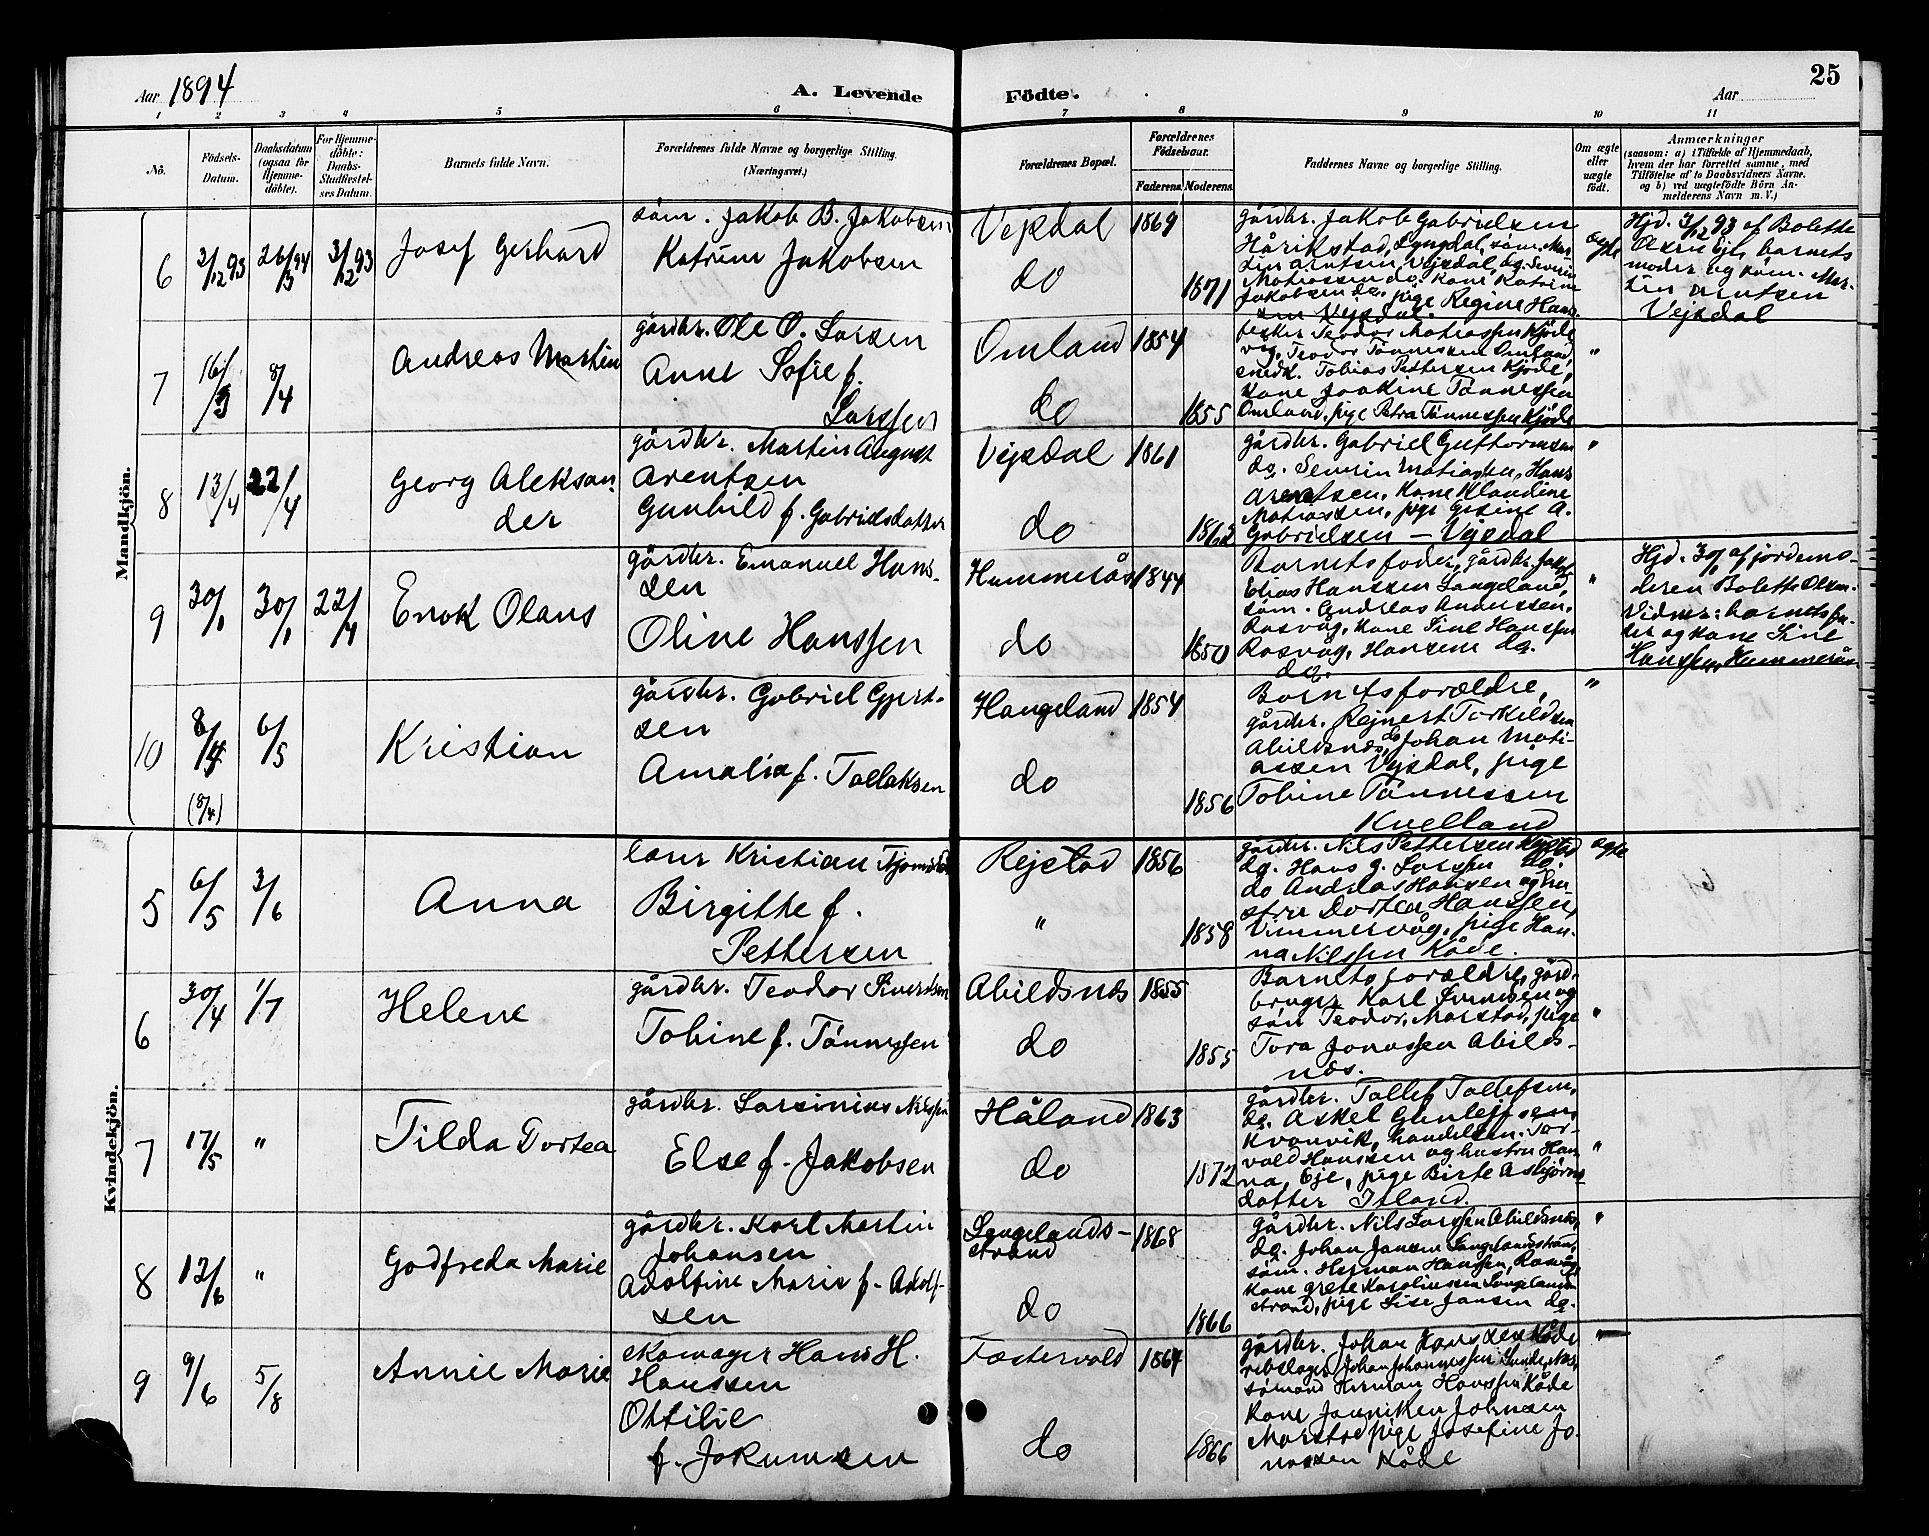 Aar 1894
A. Levende Födte.
Aar
25
1 2 3 4 5 6 7 8 9 10 11
No.
Födsels-Datum.
Daabsdatum (ogsaa for Hjemmedöbte).
For Hjemmedöbte: Daabs-Stadfæstelses Datum.
Barnets fulde Navn.
Forældrenes fulde Navne og borgerlige Stilling.
(Næringsvei.)
Forældrenes Bopæl.
Forældrenes Födselsaar.
Faderens. Moderens.
Faddernes Navne og borgerlige Stilling.
Om ægte eller uægte födt.
Anmærkninger
(saasom: a) i Tilfælde af Hjemmedaab,
hvem der har forrettet samme, med
Tilföielse af to Daabsvidners Navne.
og b) ved uægtefödte Börn An-
melderens Navn m. V.)
Mandkjön.
6 2/12 93 26/3 94 3/12 93
Josef Gerhard
søm. Jakob B. Jakobsen
Katrine Jakobsen
Vejsdal 1869
do 1871
gårdbr. Jakob Gabrielsen
Hårikstad, Lyngdal, søm. Mar-
tin Arntsen, Vejsdal, dg. Severin
Matiassen do. Kone Katrine
Jakobsen do, pige Regine Han-
sen Vejsdal.
ægte
Hjd. 3/12 93 af Bolette
Olsen Eje, barnets
moder og søm. Mar-
tin Arntsen
Vejsdal
7 16/3 8/4
Andreas Martin
gårdbr. Ole O. Larsen
Anne Sofie f.
Larssen
Omland 1854
do 1855
Teodor Matiassen Kjøde
vig, Teodor Tønnessen Omland,
snedk. Tobias Pettersen Kjøde,
kone Joakine Tønnessen
Omland, pige Petra Tønnessen Kjøde
"
8 13/4 22/4
Georg Aleksan-
der
gårdbr. Martin August
Arentsen
Gunhild f. Gabrielsdatter
Vejsdal 1861
do 1862
gårdbr. Gabriel Guttormsen
dg. Severin Matiassen, Hans
Arentsen, Kone Klaudine
Matiassen, pige Gesine A.
Gabrielsen — Vejsdal
"
9 30/1 30/1 22/4
Enok Olaus
gårdbr. Emanuel Hans-
sen
Oline Hanssen
Hummerås 1844
do 1850
Barnets fader, gårdbr. Jakob
Elias Hanssen Langeland,
søm. Andreas Andersen,
Rasvåg, Kone Sine Hanssen
Rasvåg, Hansine dg.
do.
"
Hjd. 30/1 af jordemo-
deren Bolette Olsen.
Vidner: barnets fa-
der og kone Sine
Hanssen, Hummerås
10 8/4 6/5
(8/4)
Kristian
gårdbr. Gabriel Gjert-
sen
Amalia f. Tallaksen
Haugeland 1854
do 1856
Barnets forældre,
gårdbr. Rejnert Torkildsen
Abildsnes, Johan Mati-
assen Vejsdal, pige
Tobine Tønnessen
Kvelland
"
Kvindekjön.
5 6/5 3/6
Anna
Kristian
Birgitte f.
Pettersen
Rejstad 1856
" 1858
gårdbr. Nils Pettersen Rejstad
dg. Hans G. Larssen dg.
do Andreas Hansen og hu-
stru Dortea Hanssen,
Vimmervåg, pige Han-
na Nilssen Kåde.
ægte
6 30/4 1/7
Helene
gårdbr. Teodor Sivertsen
Tobine f. Tønnessen
Abildsnes 1855
do 1855
Barnets forældre, gård-
bruger Karl Sivertsen og
søn Teodor, Marstad, pige
Tora Jonassen Abilds-
nes.
"
7 17/5 "
Tilda Dortea
gårdbr. Larsinius Nilssen
Else f. Jakobsen
Håland 1863
do 1872
gårdbr. Tallef Tallefsen,
dg. Askel Gunlejfsen,
Kvanvik, handelsm. Tor-
vald Hanssen og hustru Han-
na, Eje, pige Birte Asbjørns-
datter Itland.
"
8 12/6 "
Godfreda Marie
gårdbr. Karl Martin
Johansen
Adolfine Marie f. Adolf-
sen
Langelands-
strand 1868
do 1866
gårdbr. Nils Larssen Abildsnes,
dg. Johan Jansen Langelandsstrand,
søm. Herman Hanssen, Rasvåg,
kone Grete Karoliussen Langelands-
strand, pige Lise Jansen dg.
"
9 9/6 5/8
Annie Marie
skomager Hans H.
Hanssen
Ottilie
f. Jokumsen
Fastervold 1864
do 1866
gårdbr. Johan Hanssen Kåde
rebslager Johan Johannessen
sømand Herman Hanssen Kåde
kone Janniken Johnsen
Marstad pige Josefine Jo-
nassen Kåde
"